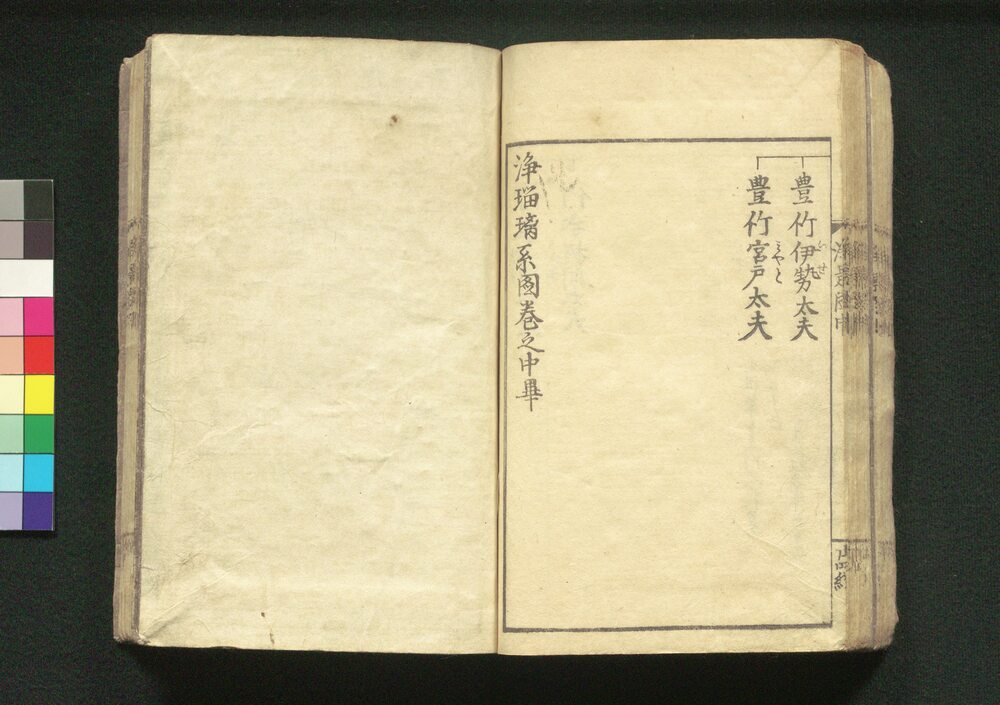 豊竹伊勢太夫
豊竹宮戸太夫
みやと
浄瑠璃系図巻之中畢